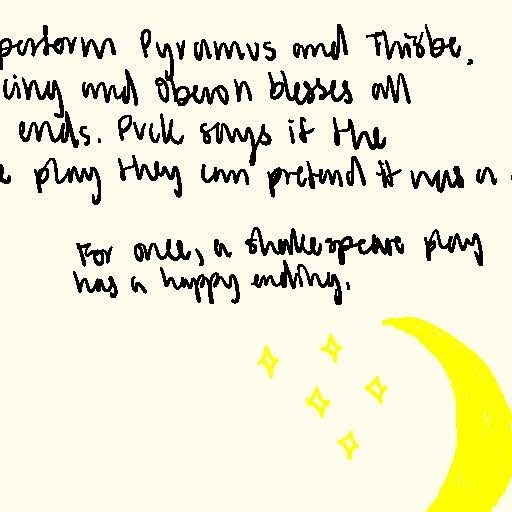 perform Pyramus and Thisbe.
cing and Oberon blesses all
ends. Puck says if the
e play they can pretend it was a
For once, a shakespeare play
has a happy ending.